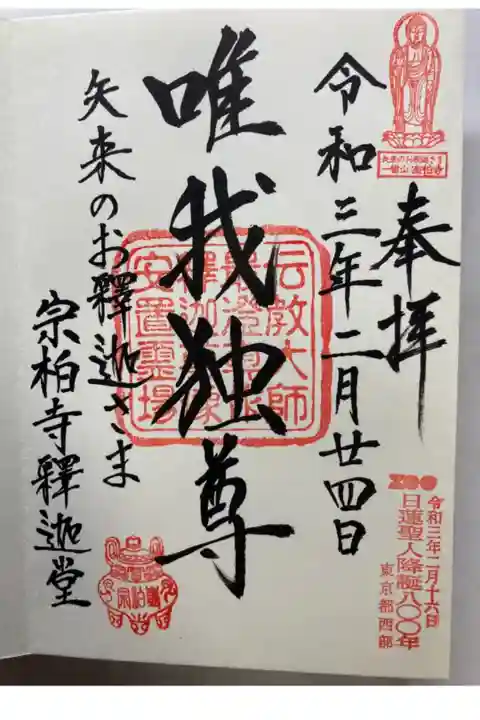 奉拝
令和三年二月廿四日
唯我独尊
矢来のお釋迦さま
宗柏寺釋迦堂
矢来のお釈迦さま
一樹山 宗柏寺
伝教大師
釋迦尊像
安置霊場
令和三年二月十六日
日蓮聖人降誕八〇〇年
東京都西部